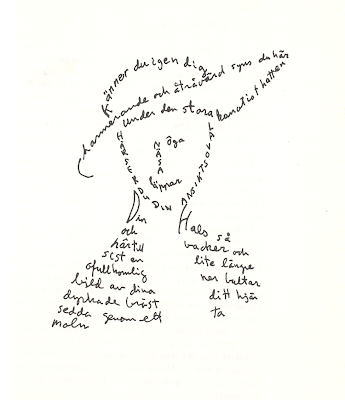 Känner du igen dig
Charmerande och åtråvärd syns du här
under den stora kanotisthatten
HÄR SER DU DIN ANSIKTSOVAL
NÄSA
öga
läppar
Din
Hals så
vacker och
lite längre
ner bultar
ditt hjär
ta
och
här till
sist en
ofullkomlig
bild av dina
dyrkade bröst
sedda genom ett
moln